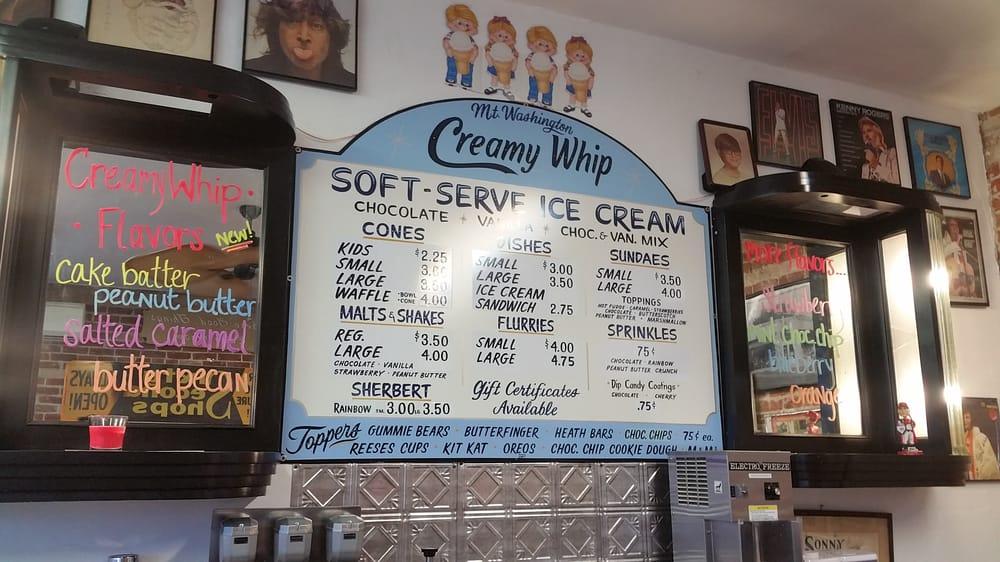 Creamy Whip
Flavors New!
cake batter
peanut butter
salted caramel
butter pecan
Mt. Washington
Creamy Whip
SOFT-SERVE ICE CREAM
CHOCOLATE VANILLA CHOC. & VAN. MIX
CONES
KIDS $2.25
SMALL
LARGE 3.50
WAFFLE BOWL CONE 4.00
MALTS & SHAKES
REG. $3.50
LARGE 4.00
CHOCOLATE · VANILLA
STRAWBERRY · PEANUT BUTTER
SHERBERT
RAINBOW SM. 3.00 LG. 3.50
DISHES
SMALL $3.00
LARGE 3.50
ICE CREAM
SANDWICH 2.75
FLURRIES
SMALL $4.00
LARGE 4.75
Gift Certificates
Available
SUNDAES
SMALL $3.50
LARGE 4.00
TOPPINGS
HOT FUDGE · CARAMEL · STRAWBERRIES
CHOCOLATE · BUTTERSCOTCH
PEANUT BUTTER · MARSHMALLOW
SPRINKLES
75¢
CHOCOLATE · RAINBOW
PEANUT BUTTER CRUNCH
Dip Candy Coatings
CHOCOLATE · CHERRY
.75¢
Toppers GUMMIE BEARS · BUTTERFINGER · HEATH BARS · CHOC. CHIPS 75¢ ea.
REESES CUPS · KIT KAT · OREOS · CHOC. CHIP COOKIE DOUGH · M&M
More Flavors...
Strawberry
Mint Choc. chip
blueberry
orange
KENNY ROGERS
ELVIS
ELECTRO FREEZE
SONNY
OPEN!
Second
Shops